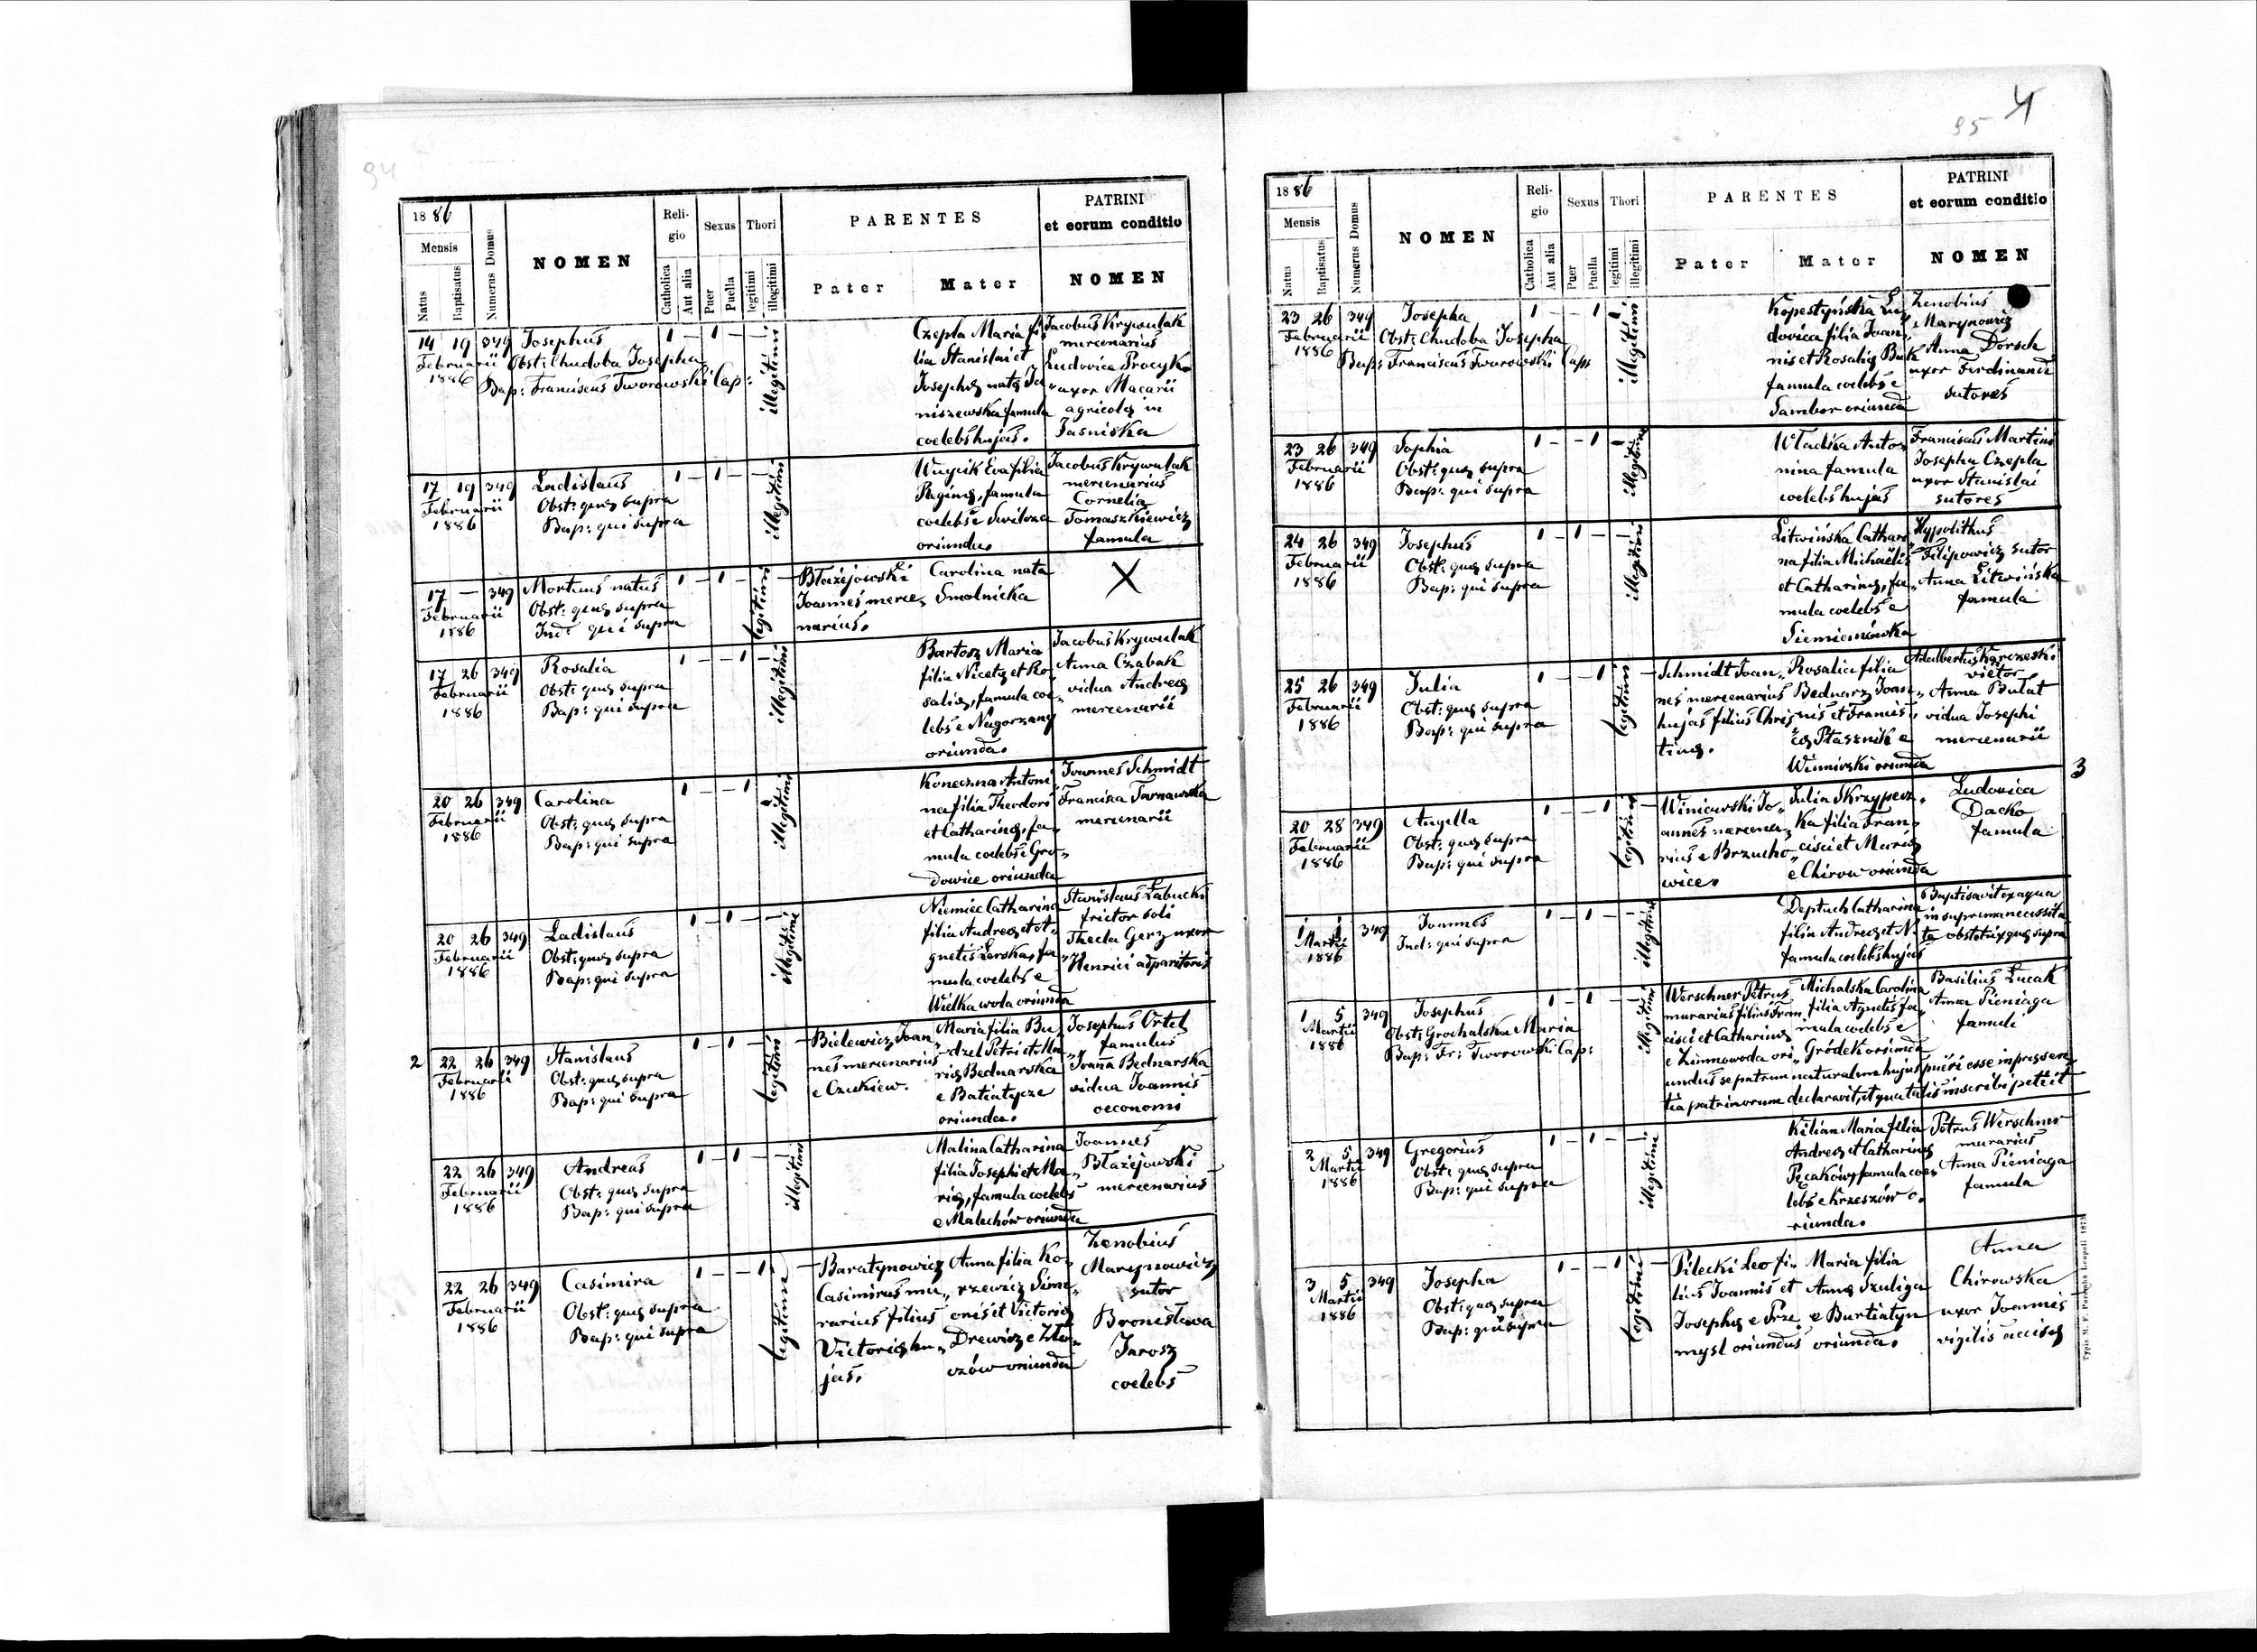 94
1886
Mensis
Natus
Baptisatus
Numerus Domus
NOMEN
Religio
Catholica
Aut alia
Sexus
Puer
Puella
Thori
legitimi
illegitimi
PARENTES
Pater
Mater
PATRINI
et eorum conditio
NOMEN
14 19 349
Februarii
1886
Josephus
Obst: Chudoba Josepha
Bap: Franciscus Tworowski Cap:
1 – 1 – –
illegitimi
Czepla Maria fi
lia Stanislai et
Josephę natę Ja
niszewska famula
coelebs hujas.
Jacobus Krywulak
mercenarius
Ludovica Procyk
uxor Macarii
agricolę in
Jasniska
17 19 349
Februarii
1886
Ladislaus
Obst: quę supra
Bap: qui supra
1 – 1 – –
illegitimi
Wuycik Eva filia
famula
coelebs e
oriunda
Jacobus Krywulak
mercenarius
Cornelia
Tomaszkiewicz
famula
17 – 349
Februarii
1886
Mortuus natus
Obst: quę supra
Ind: qui supra
1 – 1 –
legitimi
Błażejowski
Joannes merce„
narius.
Carolina nata
Smolnicka
X
17 26 349
Februarii
1886
Rosalia
Obst: quę supra
Bap: qui supra
1 – – 1 –
illegitimi
Bartosz Maria
filia Nicetę et Ro„
salię, famula coe„
lebs e Nagorzany
oriunda.
Jacobus Krywulak
Anna Czabak
vidua Andreę
mercenarii
20 26 349
Februarii
1886
Carolina
Obst: quę supra
Bap: qui supra
1 – – 1 –
illegitimi
Koneczna Antoni„
na filia Theodori
et Catharinę, fa„
mula coelebs e Gro„
dowice oriunda
Joannes Schmidt
Francisca Tarnawska
mercenarii
20 26 349
Februarii
1886
Ladislaus
Obst: quę supra
Bap: qui supra
1 – 1 – –
illegitimi
Niemiec Catharina
filia Andreę et A„
gnetis Lerska, fa„
mula coelebs e
Wielka wola oriunda
Stanislaus Łabucki
frictor soli
Thecla Gerz uxor
Henrici adparitoris
2
22 26 349
Februarii
1886
Stanislaus
Obst: quę supra
Bap: qui supra
1 – 1 –
legitimi
Bielewicz Joan„
nes mercenarius
e Czukiew.
Maria filia Bu„
dzel Petri et Ma„
rię Bednarska
e Batiatycze
oriunda.
Josephus Ortel
famulus
Joanna Bednarska
vidua Joannis
oeconomi
22 26 349
Februarii
1886
Andreas
Obst: quę supra
Bap: qui supra
1 – 1 – –
illegitimi
Malina Catharina
filia Josephi et Ma„
rię, famula coelebs
e Malechów oriunda
Joannes
Błażejowski
mercenarius
22 26 349
Februarii
1886
Casimira
Obst: quę supra
Bap: qui supra
1 – – 1
legitimi
Baratynowicz
Casimirus mu„
rarius filius
Victorię hu„
jas.
Anna filia Ko„
rzewicz Sime„
onis et Victorię
Drewicz e Zło„
czów oriunda
Zenobius
Marynowicz
sutor
Bronisława
Jarosz
coelebs
95
1886
Mensis
Natus
Baptisatus
Numerus Domus
NOMEN
Religio
Catholica
Aut alia
Sexus
Puer
Puella
Thori
legitimi
illegitimi
PARENTES
Pater
Mater
PATRINI
et eorum conditio
NOMEN
23 26 349
Februarii
1886
Josepha
Obst: Chudoba Josepha
Bap: Franciscus Tworowski Cap:
1 – – 1 –
illegitimi
Kopestyńska Lu„
dovica filia Joan„
nis et Rosalię
famula coelebs e
Sambor oriunda
Zenobius
Marynowicz
Anna Dorsch
uxor Ferdinandi
sutores
23 26 349
Februarii
1886
Sophia
Obst: quę supra
Bap: qui supra
1 – – 1 –
illegitimi
Wladika Anto„
nina famula
coelebs hujas
Franciscus Martini
Josepha Czepla
uxor Stanislai
sutores
24 26 349
Februarii
1886
Josephus
Obst: quę supra
Bap: qui supra
1 – 1 – –
illegitimi
Litwińska Cathari„
na filia Michaelis
et Catharinę, fa„
mula coelebs e
Siemianówka
Hypolithus
Filipowicz sutor
Anna Litwińska
famula
25 26 349
Februarii
1886
Julia
Obst: quę supra
Bap: qui supra
1 – – 1
legitimi
Schmidt Joan„
nes mercenarius
hujas filius Chris
tinę.
Rosalia filia
Bednarz Joan„
nis et Francis„
cę Ptasznik e
Winniczki oriunda
Adalbertus Karczeski
vietor
Anna Bułat
vidua Josephi
mercenarii
3
20 28 349
Februarii
1886
Angella
Obst: quę supra
Bap: qui supra
1 – – 1
legitimi
Winiawski Jo„
annes mercena„
rius e Brzucho„
wice.
Julia Skrzypecz„
ka filia Fran„
cisci et Marię
e Chirow oriunda
Ludovica
Dacko
famula
1 1 349
Martii
1886
Joannes
Ind: qui supra
1 – 1 – –
illegitimi
Deptuch Catharina
filia Andreę et N.
famula coelebs hujas
Baptisavit ex aqua
in suprema necessita
te obstetrix quę supra
1 5 349
Martii
1886
Josephus
Obst: Grochalska Maria
Bap: Fr: Tworowski Cap:
1 – 1 – –
illegitimi
Werschner Petrus
murarius filius Fran„
cisci et Catharinę
e Zimnowoda ori„
Michalska Carolina
filia Agnetis fa„
mula coelebs e
Gródek oriunda
Basilius Łucak
Anna Pieniaga
famuli
undus se patrem naturalem hujus pueri esse in pressen
tia patrinorum declaravit, et qua talis inscribi petiit
2 5 349
Martii
1886
Gregorius
Obst: quę supra
Bap: qui supra
1 – 1 – –
illegitimi
Kilian Maria filia
Andreę et Catharinę
famula coe„
lebs e Krzeszów o„
riunda.
Petrus Werschner
murarius
Anna Pieniaga
famula
3 5 349
Martii
1886
Josepha
Obst: quę supra
Bap: qui supra
1 – – 1
legitimi
Pilecki Leo fi„
lius Joannis et
Josephę e Prze„
mysl oriundus
Maria filia
Annę Szuliga
e Burtiatyn
oriunda.
Anna
Chirowska
uxor Joannis
vigilis accisę